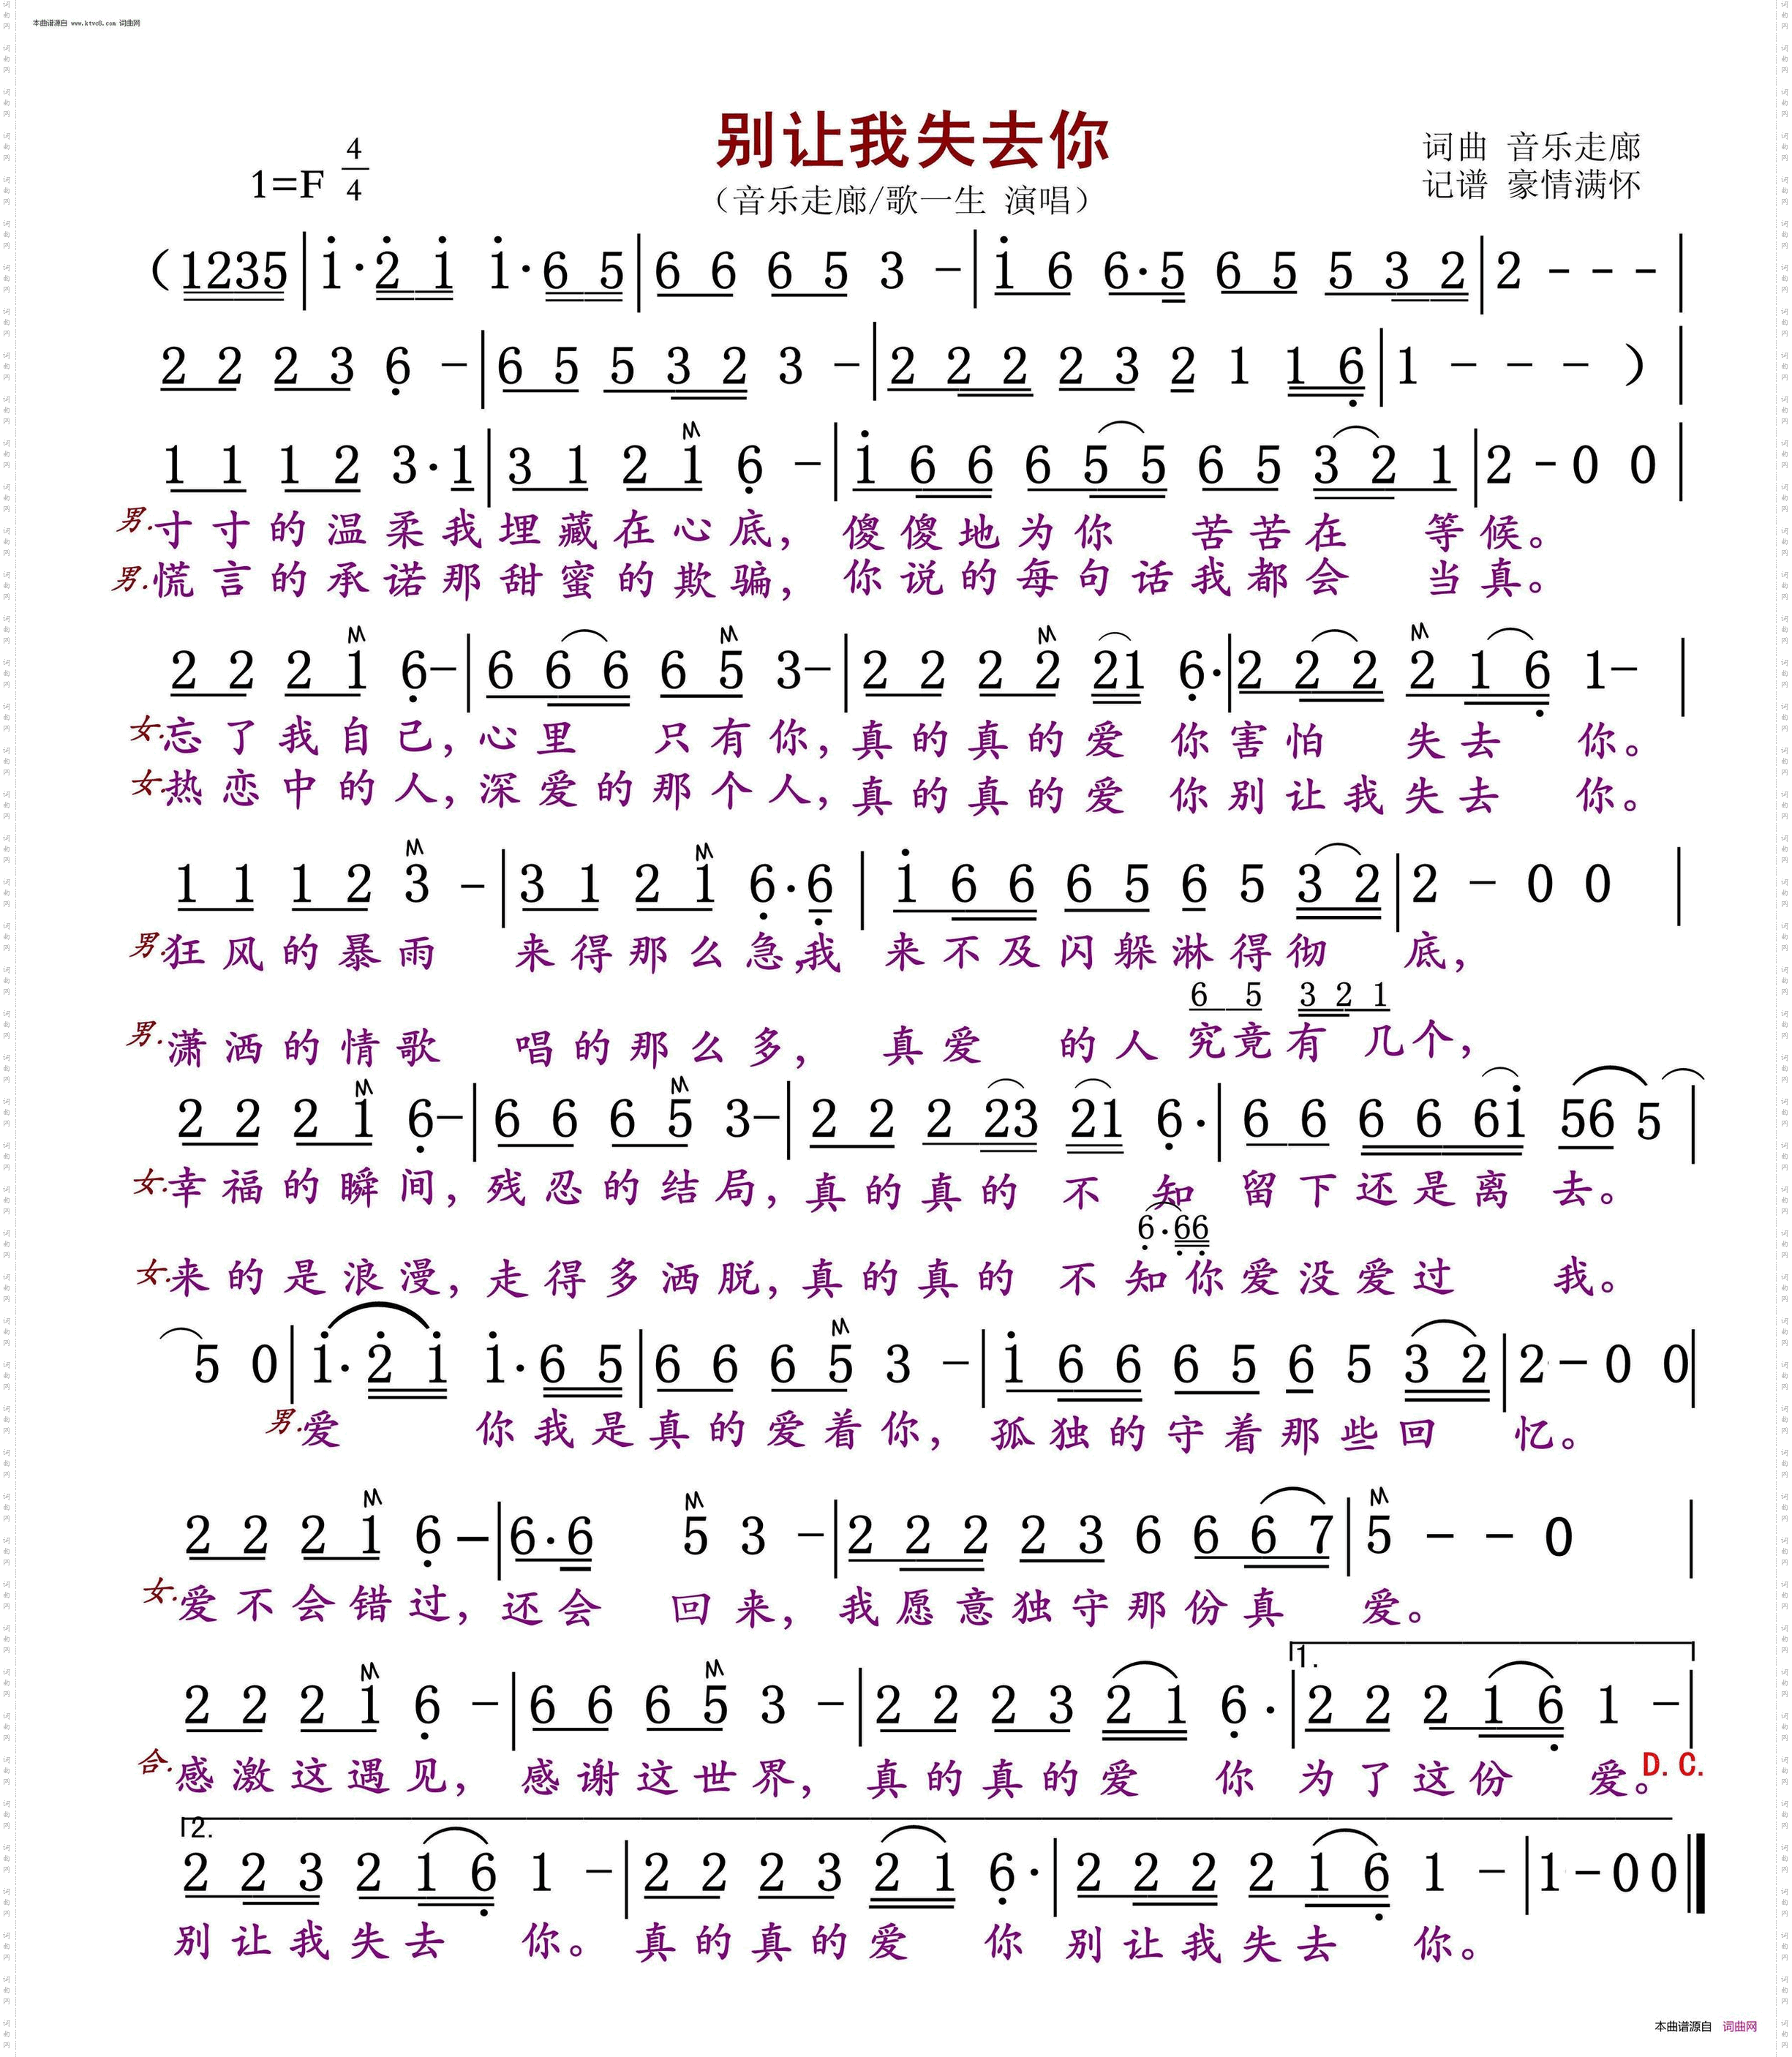 本曲谱源自 www.ktvc8.com 词曲网
别让我失去你
1=F 4/4
（音乐走廊/歌一生 演唱）
词曲 音乐走廊
记谱 豪情满怀
（1235|1·2 1 1·6 5|6 6 6 5 3 -|1 6 6·5 6 5 5 3 2|2 - - -|
2 2 2 3 6 -|6 5 5 3 2 3 -|2 2 2 2 3 2 1 1 6|1 - - - ）|
1 1 1 2 3·1|3 1 2 1 6 -|1 6 6 6 5 5 6 5 3 2 1|2 - 0 0|
男.寸寸的温柔我埋藏在心底，傻傻地为你 苦苦在 等候。
男.慌言的承诺那甜蜜的欺骗，你说的每句话我都会 当真。
2 2 2 1 6-|6 6 6 6 5 3-|2 2 2 2 21 6·|2 2 2 2 1 6 1-|
女.忘了我自己，心里 只有你，真的真的爱 你害怕 失去 你。
女.热恋中的人，深爱的那个人，真的真的爱 你别让我失去 你。
1 1 1 2 3 -|3 1 2 1 6·6|1 6 6 6 5 6 5 3 2|2 - 0 0|
男.狂风的暴雨 来得那么急，我 来不及闪躲淋得彻 底，
6 5 3 2 1
男.潇洒的情歌 唱的那么多， 真爱 的人究竟有 几个，
2 2 2 1 6-|6 6 6 5 3-|2 2 2 23 21 6·|6 6 6 6 61 56 5|
女.幸福的瞬间，残忍的结局，真的真的 不 知 留下还是离 去。
6·66
女.来的是浪漫，走得多洒脱，真的真的 不 知你爱没爱过 我。
5 0|1·2 1 1·6 5|6 6 6 5 3 -|1 6 6 6 5 6 5 3 2|2·- 0 0|
男.爱 你我是真的爱着你， 孤独的守着那些回 忆。
2 2 2 1 6 -|6·6 5 3 -|2 2 2 2 3 6 6 6 7|5 - - 0|
女.爱不会错过，还会 回来， 我愿意独守那份真 爱。
1.
2 2 2 1 6 -|6 6 6 5 3 -|2 2 2 3 2 1 6·|2 2 2 1 6 1 -|
合.感激这遇见， 感谢这世界， 真的真的爱 你 为了这份 爱。D.C.
2.
2 2 3 2 1 6 1 -|2 2 2 3 2 1 6·|2 2 2 2 1 6 1 -|1 - 0 0‖
别让我失去 你。真的真的爱 你 别让我失去 你。
本曲谱源自 词曲网